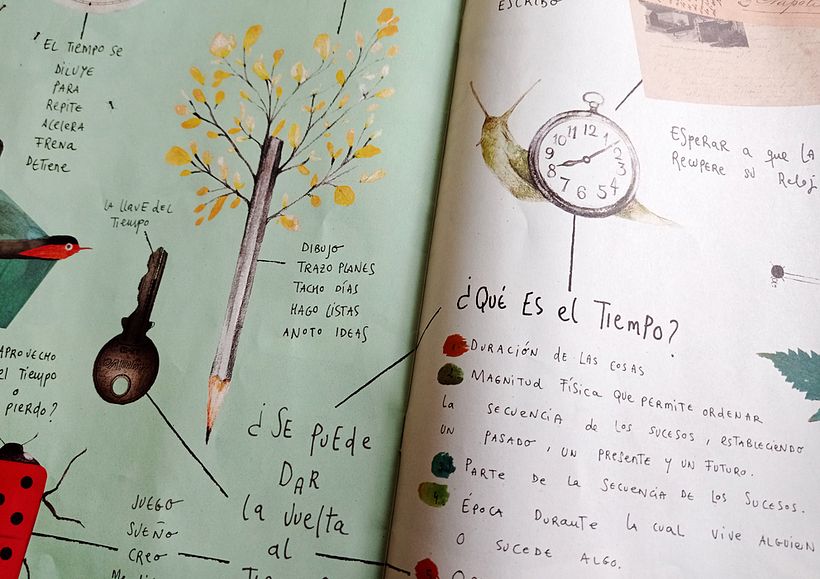 EL TIEMPO SE
DILUYE
PARA
REPITE
ACELERA
FRENA
DETIENE
LA LLAVE DEL
TIEMPO
DIBUJO
TRAZO PLANES
TACHO DÍAS
HAGO LISTAS
ANOTO IDEAS
APROVECHO
El TIEMPO
o
PIERDO?
¿SE PUEDE
DAR
la vuelta
al
JUEGO
SUEÑO
CREO
ESCRIBO
12
1
2
3
4
5
6
7
8
9
10
11
ESPERAR A QUE LA
RECUPERE SU RELOJ
¿QUÉ ES el TIEMPO?
1. DURACIÓN DE LAS COSAS
MAGNITUD FÍSICA QUE PERMITE ORDENAR
la SECUENCIA DE LOS SUCESOS, ESTABLECIENDO
UN PASADO, UN PRESENTE Y UN FUTURO.
PARTE DE LA SECUENCIA DE LOS SUCESOS.
ÉPOCA DURANTE la CUAL VIVE ALGUIEN
O SUCEDE ALGO.